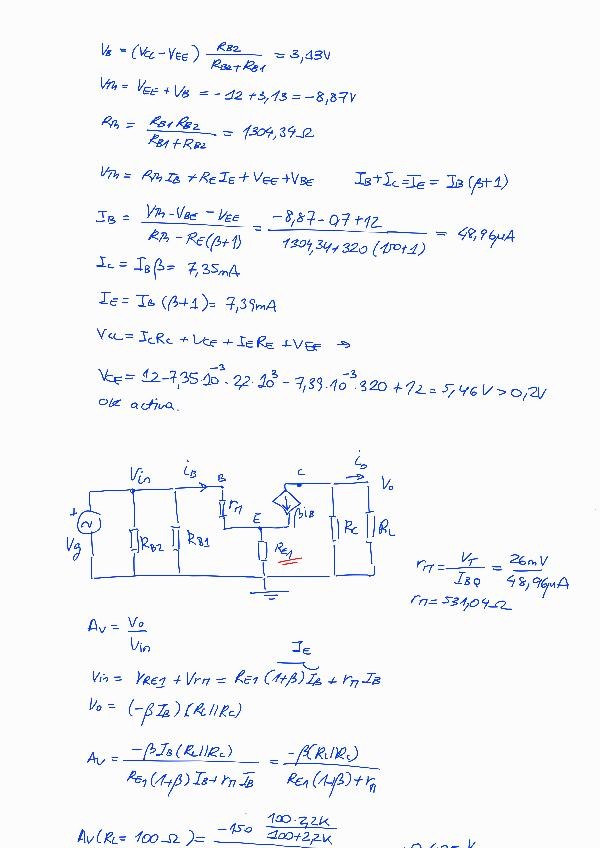 V_B = (V_CC - V_EE) R_B2 / (R_B2 + R_B1) = 3,13V
V_Th = V_EE + V_B = -12 + 3,13 = -8,87V
R_Th = R_B1 R_B2 / (R_B1 + R_B2) = 1304,34Ω
V_Th = R_Th I_B + R_E I_E + V_EE + V_BE I_B + I_C = I_E = I_B (β+1)
I_B = (V_Th - V_BE - V_EE) / (R_Th - R_E(β+1)) = (-8,87 - 0,7 + 12) / (1304,34 + 320 (150+1)) = 48,96µA
I_C = I_B β = 7,35mA
I_E = I_B (β+1) = 7,39mA
V_CC = I_C R_C + V_CE + I_E R_E + V_EE ⇒
V_CE = 12 - 7,35·10^-3 · 2,2·10^3 - 7,39·10^-3 · 320 + 12 = 5,46V > 0,2V
OK activa.
Vin i_B B C i_o V_o
+ Vg R_B2 R_B1 r_π E βi_B R_C R_L
R_E1
r_π = V_T / I_BQ = 26mV / 48,96µA
r_π = 531,04Ω
A_V = V_o / V_in
I_E
V_in = V_RE1 + V_rπ = R_E1 (1+β) I_B + r_π I_B
V_o = (-β I_B) (R_L//R_C)
A_V = -β I_B (R_L//R_C) / (R_E1 (1+β) I_B + r_π I_B) = -β(R_L//R_C) / (R_E1 (1+β) + r_π)
A_V (R_L = 100Ω) = -150 100·2,2K / (100+2,2K)